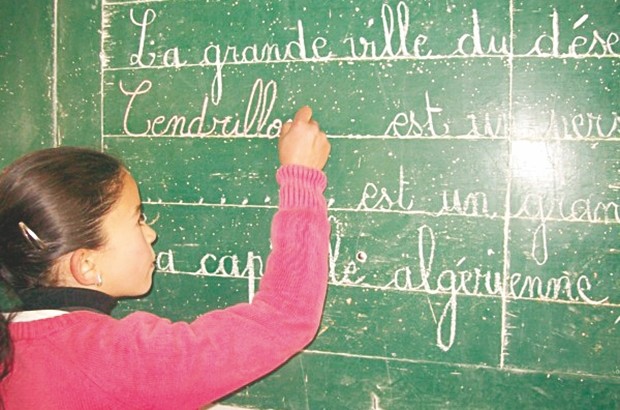 La grande ville du dése
Cendrillo ... est un pers
........ est un gran
a capitale algérienne